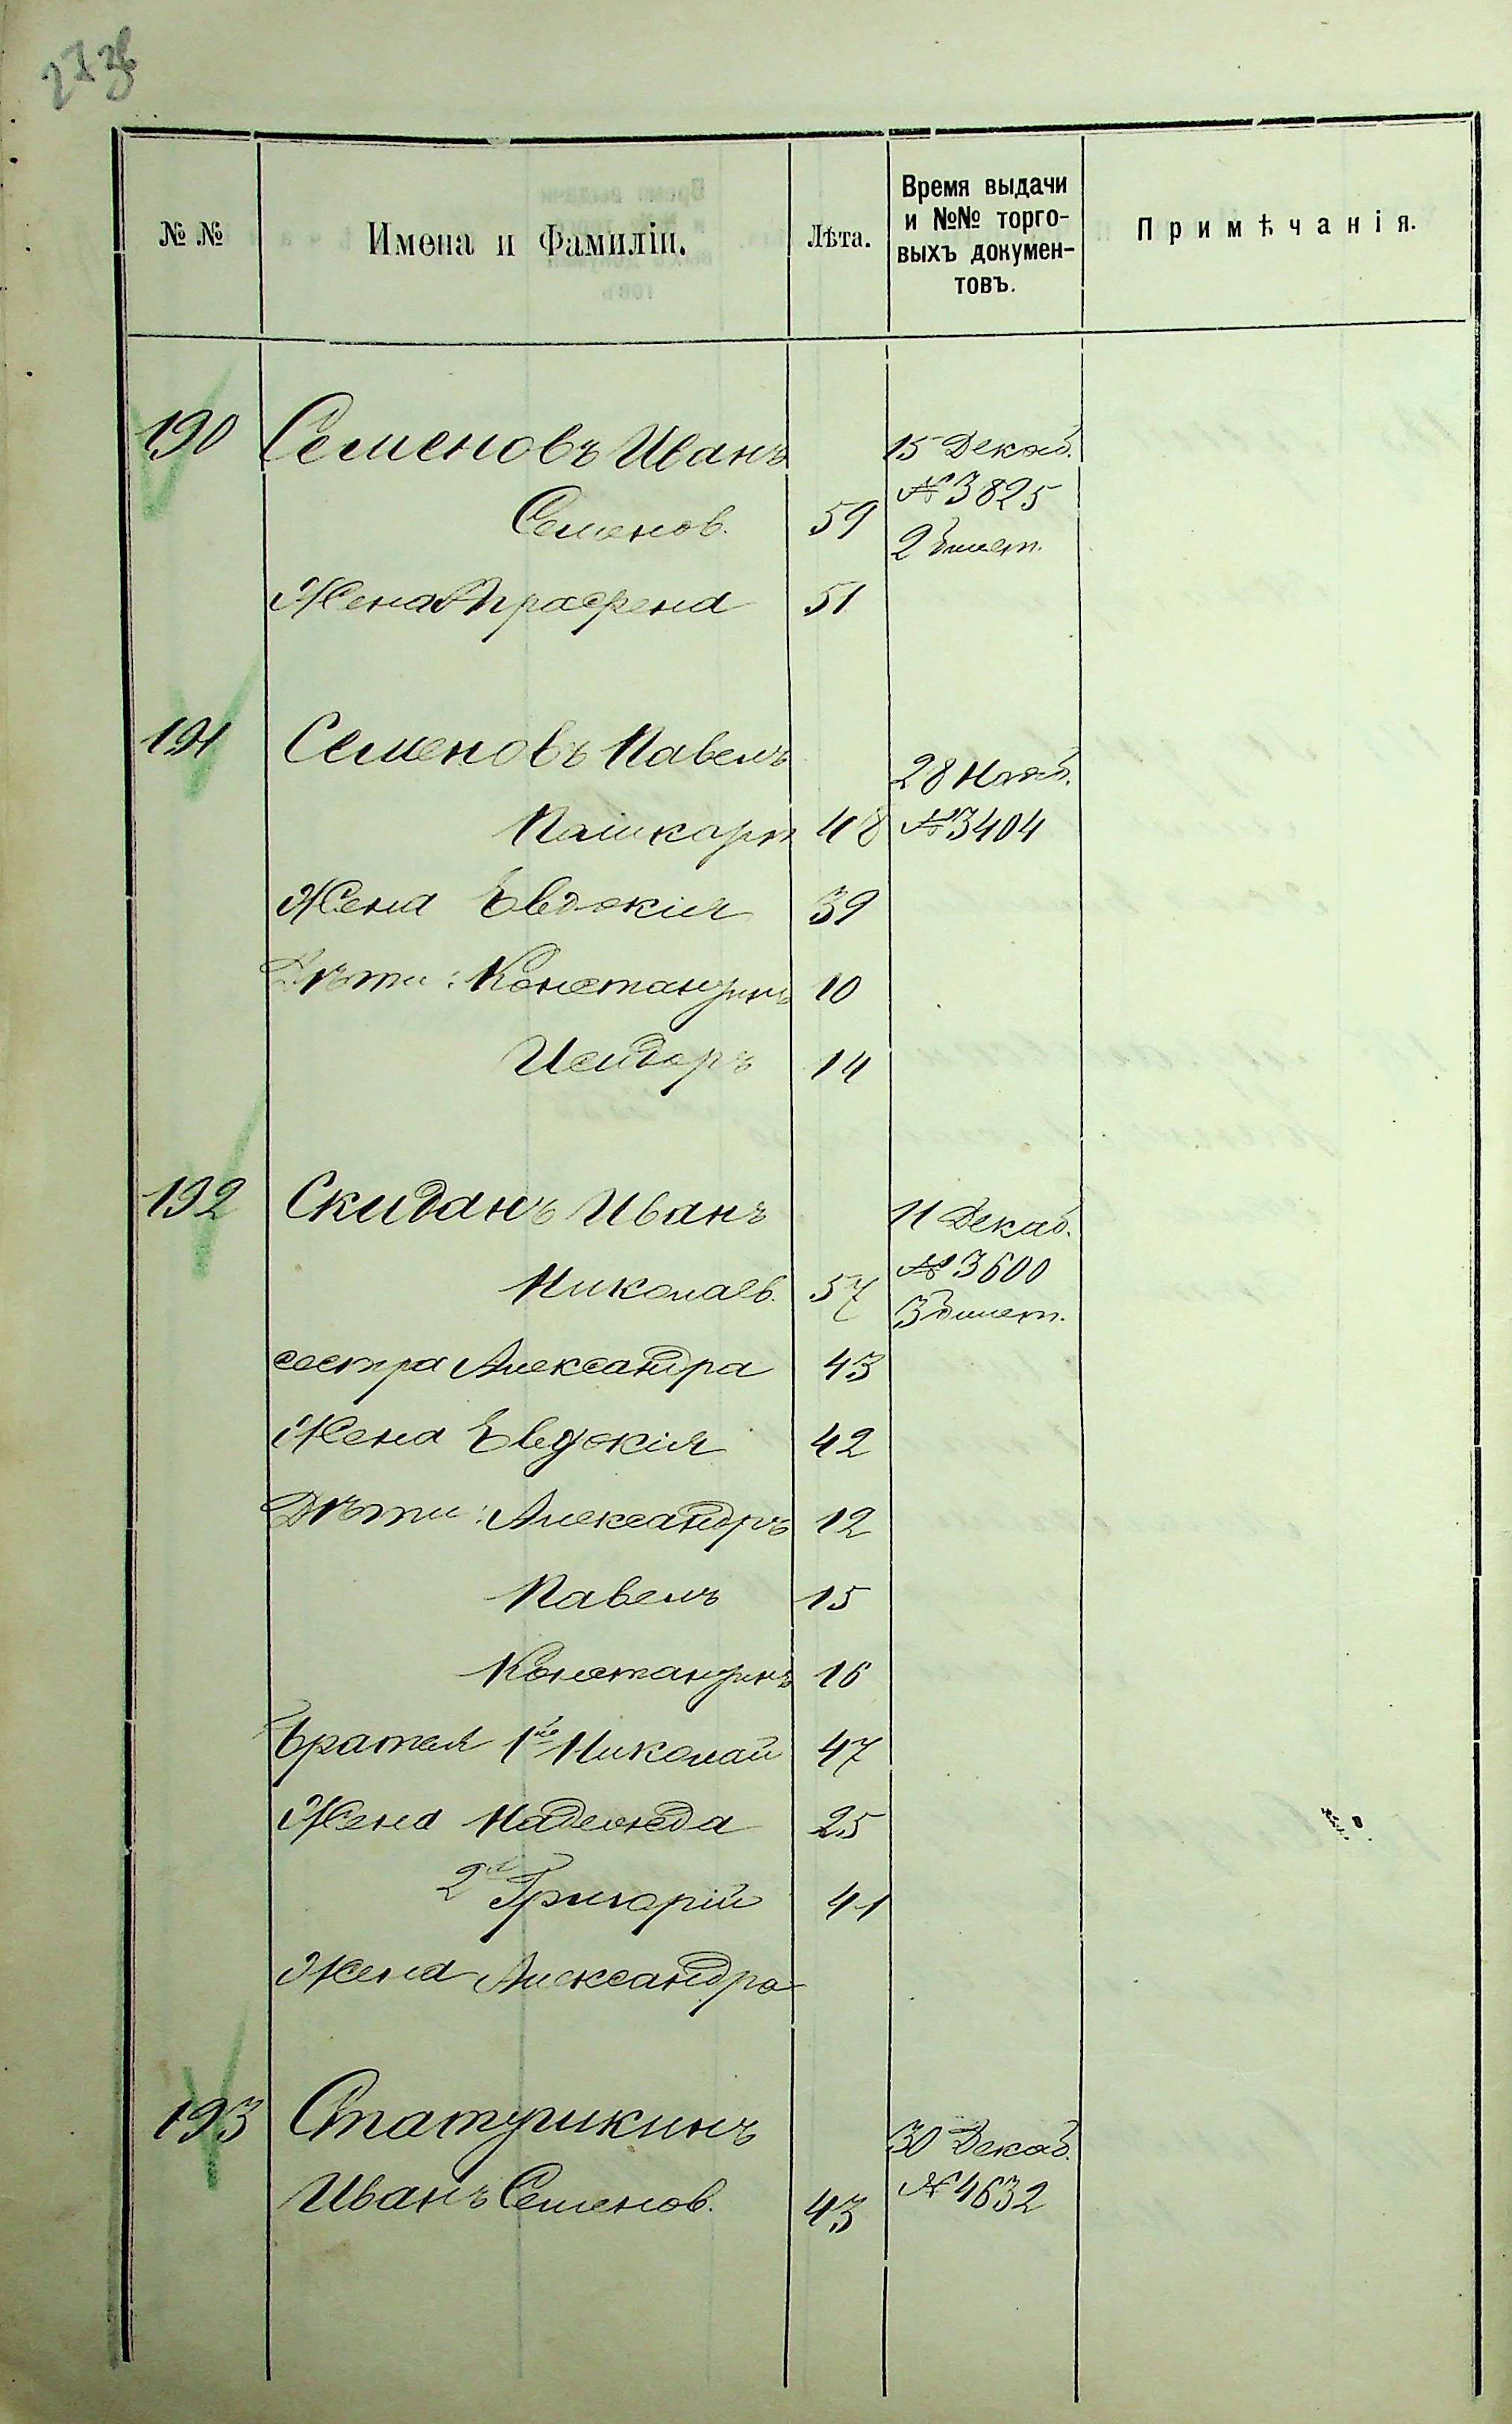 273б
№ №
Имена и Фамиліи.
Лѣта.
Время выдачи
и №№ торго-
выхъ докумен-
товъ.
Примѣчанія.
190 Семеновъ Иванъ 15 Декаб.
№ 3825
Семенов. 59
2 билет.
Жена Аграфена 51
191 Семеновъ Павелъ
28 Нояб.
48 № 3404
Жена Евдокія 39
Дѣти: Константинъ 10
Исидоръ 14
192 Скиданъ Иванъ 11 Декаб.
Николаев. 57 № 3600
3 билет.
сестра Александра 43
Жена Евдокія 42
Дѣти: Александръ 12
Павелъ 15
Константинъ 16
братья 1й Николай 47
Жена Надежда 25
2й Григорій 41
Жена Александра
193 Статушкинъ 30 Декаб.
Иванъ Семенов. 43 № 4632